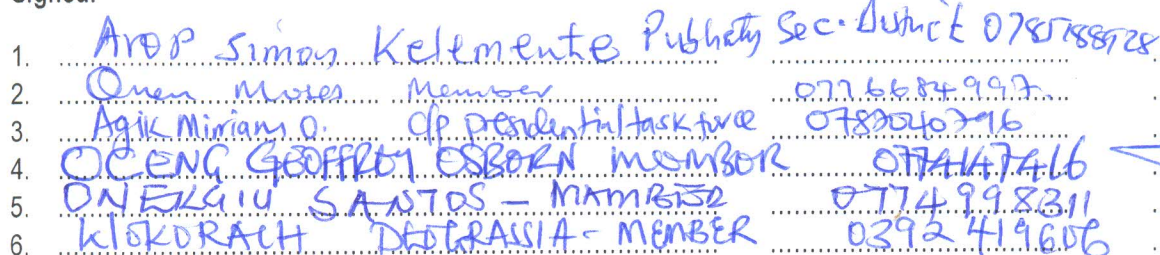 Signed:
1. Arop Simon Kelemente Publicity Sec. District
2. Onen Moses Member 0776684997.
3. Agik Miriam O. C/p presidential task force 0782040796
4. OCENG GEOFFREY OSBORN MEMBER 0774147416
5. SANTOS - MEMBER 0774998311
6. DEOGRASSIA - MEMBER 0392419606